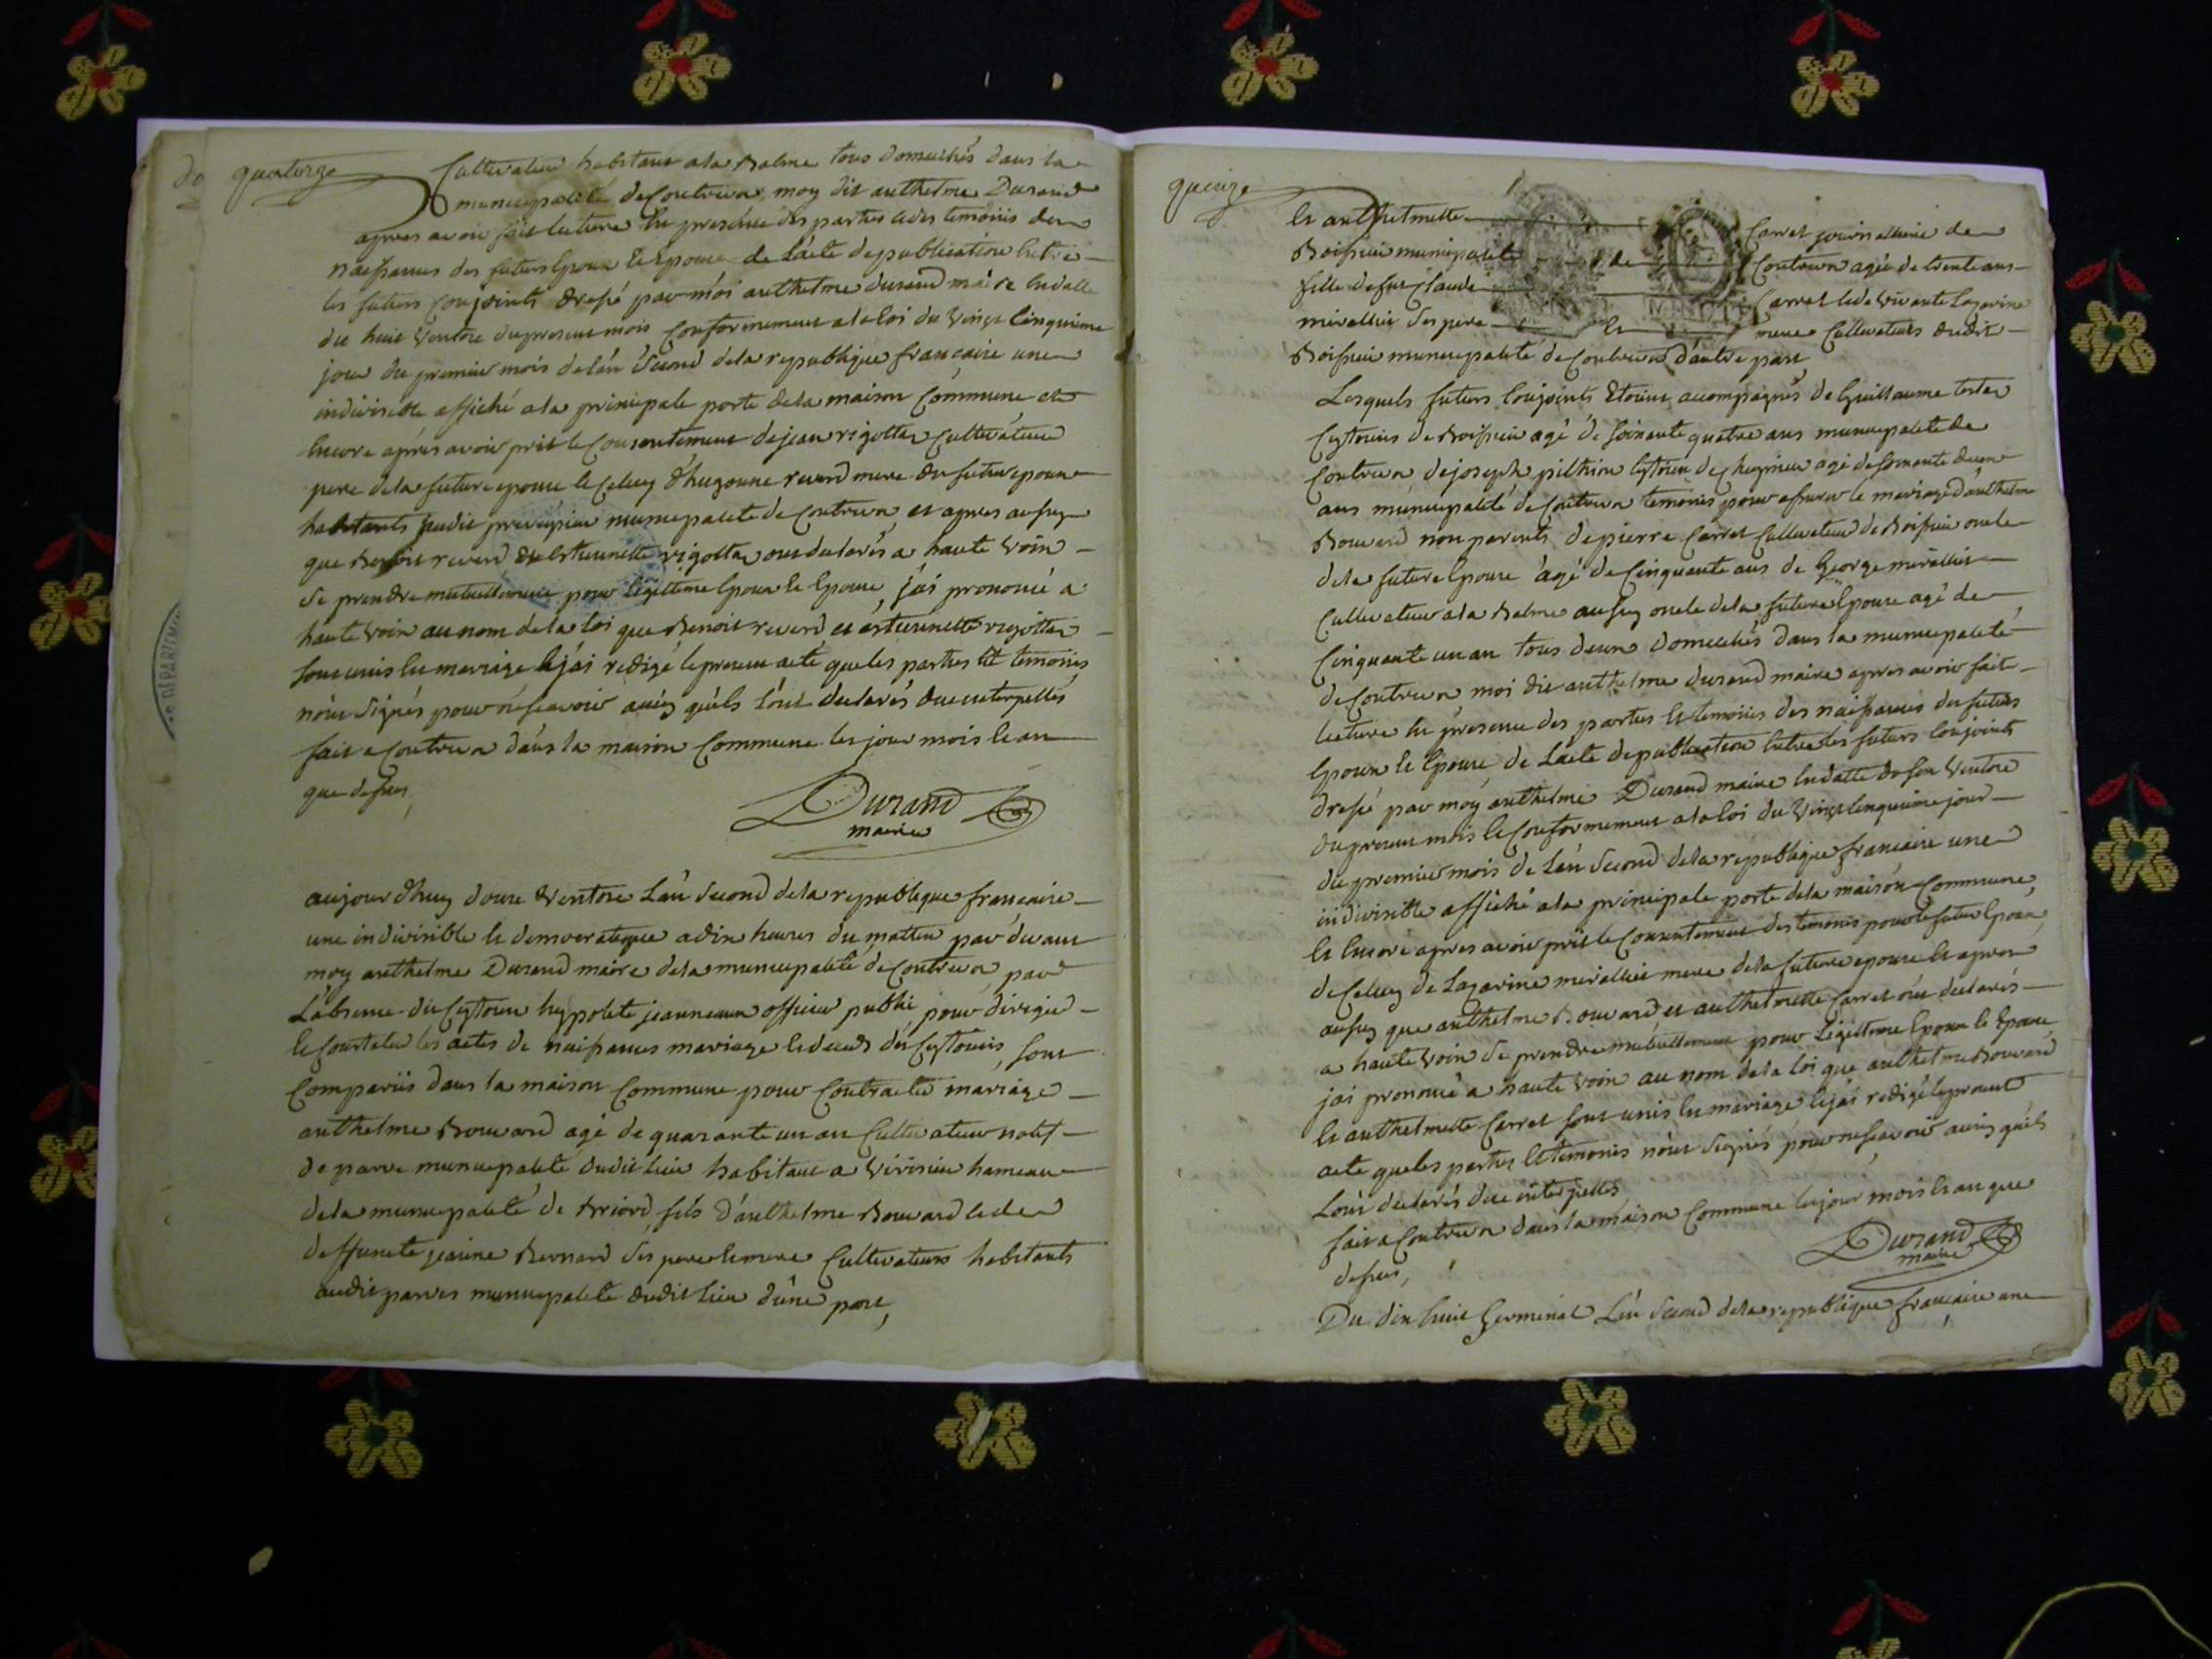 quatorze
Cultivateur habitant a la Balme tous domiciliés dans la
municipalité de Contrevoz moy dit anthelme Durand
apres avoir fait lecture En presence des parties et des temoins des
naissances des futurs Epoux Et Epouse de L'acte de publication Entre
les futurs Conjoints dressé par moi anthelme durand maire En datte
du huit Ventose du present mois Conformement a la loi du Vingt Cinquieme
jour du premier mois de l'an Second de la republique francaise une
indivisible affiché a la principale porte de la maison Commune et
Encore aprés avoir prit le Consentement de jean rigottaz Cultivateur
pere de la future epouse Et Celuy d'hugonne reverd mere du futur epoux
habitants municipalité de Contrevoz et apres aussy
que Benoit reverd Et Estiennette rigottaz ont declarés a haute Voix
de prendre mutuellement pour légittime Epoux Et Epouse, j'ai prononcé a
haute Voix au nom de la loi que Benoit reverd et estiennette rigottaz
sont unis En mariage Et j'ai redigé le present acte que les parties Et temoins
n'ont Signés pour ne scavoir ainsy qu'ils l'ont declarés de ce interpellés
fait a Contrevoz dans la maison Commune les jour mois Et an
que dessus,
Durand
maire
aujourd'huy douze Ventose L'an Second de la republique francaise
une indivisible Et democratique a dix heures du mattin par devant
moy anthelme Durand maire de la municipalité de Contrevoz par
L'absence du Cytoien hypolite jeanneaux officier public pour diriger
Et Constater les actes de naissances mariage Et decés des Cytoiens, sont
Comparûs dans la maison Commune pour Contracter mariage
anthelme Bouvard agé de quarante un an Cultivateur natif
de parve municipalité dudit lieu habitant a Virieu hameau
de la municipalité de Briord fils d'anthelme Bouvard et de
deffuncte jeanne Bernard Ses pere Et mere Cultivateurs habitants
audit parves municipalité dudit lieu d'une part,
queinze
Et anthelmette Carret journalliere de
Boissieu municipalité de Contrevoz agée de trente ans
fille de feu Claude Carret Et de Vivante Lazarine
mirallier Ses pere Et mere Cultivateurs dudit
Boissieu municipalité de Contrevoz d'autre part
Lesquels futurs Conjoints Etoient acompagnés de Guillaume tertan
Cytoiens de Boissieu agé de soixante quatre ans municipalité de
Contrevoz de joseph Cytoien de Cheyrieu agé de soixante deux
ans municipalité de Contrevoz temoins pour assurer le mariage d'anthelme
Bouvard non parents de pierre Carret Cultivateur de Boissieu oncle
de la future Epouse agé de Cinquante ans de George mirallier
Cultivateur a la Balme aussy oncle de la future Epouse agé de
Cinquante un an tous deux domiciliés dans la municipalité
de Contrevoz moi dit anthelme durand maire apres avoir fait
lecture En presence des parties Et temoins des naissances des futurs
Epoux Et Epouse de L'acte de publication Entre les futurs Conjoints
dressé par moy anthelme Durand maire En datte du six Ventose
du present mois Et Conformement a la loi du Vingt Cinquieme jour
du premier mois de L'an Second de la republique francaise une
indivisible affiché a la principale porte de la maison Commune,
Et Encore apres avoir prit le Consentement des temoins pour le futur Epoux
de Celuy de Lazarine mirallier mere de la future epouse Et apres
aussy que anthelme Bouvard et anthelmette Carret ont declarés
a haute Voix de prendre mutuellement pour Légittime Epoux Et Epouse
jai prononcé a haute Voix au nom de la loi que anthelme Bouvard
Et anthelmette Carret sont unis En mariage Et j'ai redigé le present
acte que les parties Et temoins n'ont Signés pour ne scavoir ainsy qu'ils
L'ont declarés de ce interpellés
fait a Contrevoz dans la maison Commune les jour mois Et an que
dessus,
Durand
maire
Du dix huit Germinal L'an Second de la republique francaise une